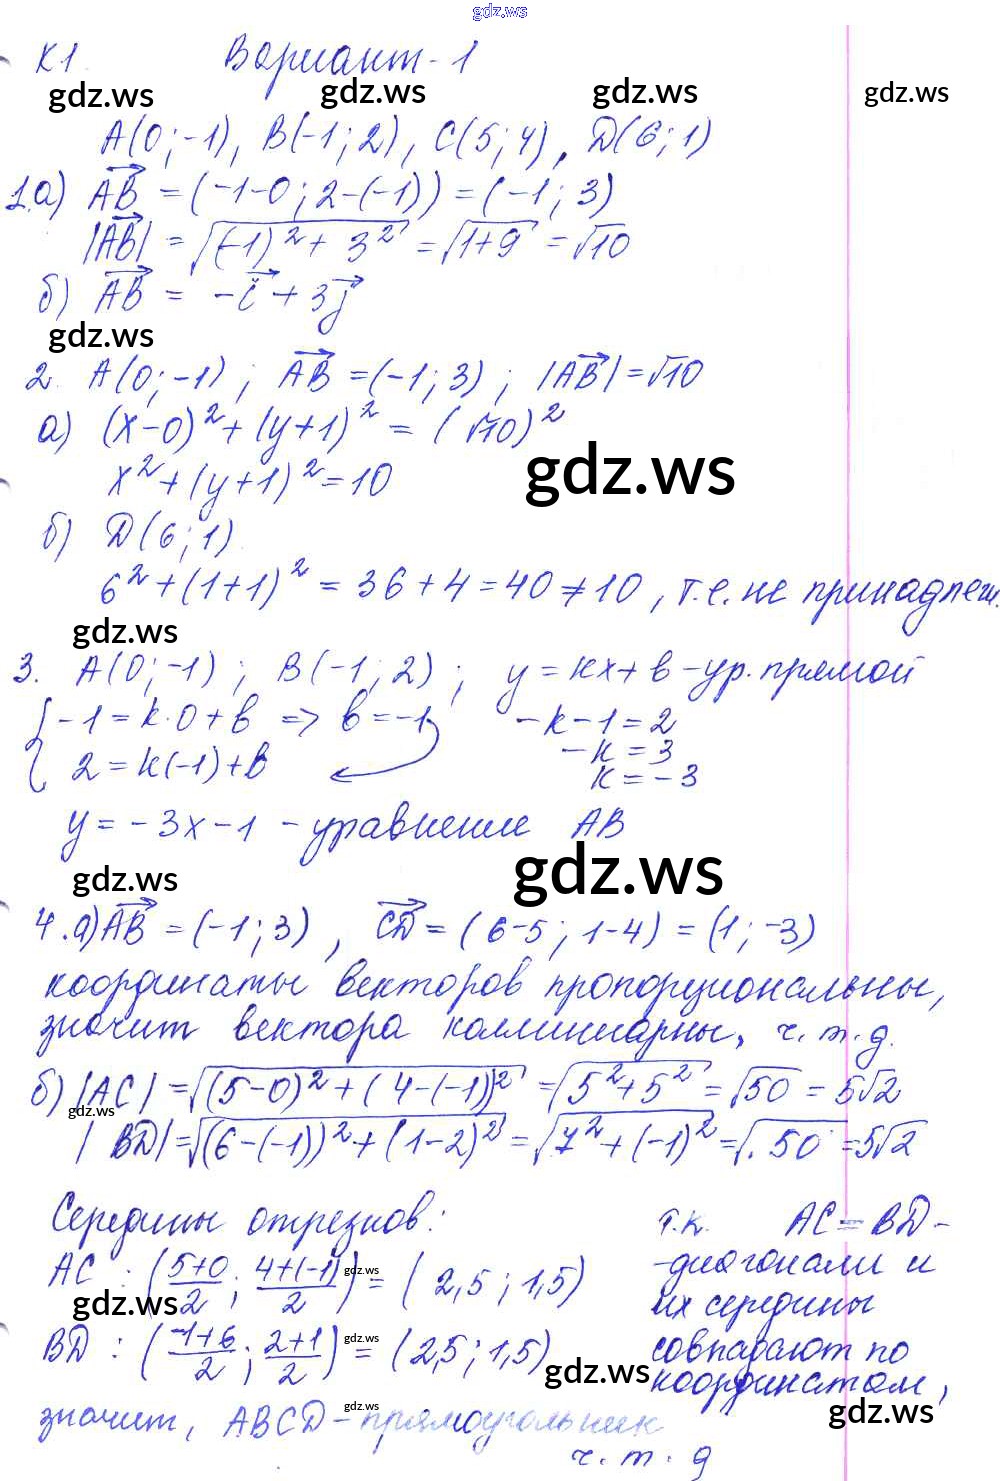 gdz.ws
К1. Вариант-1
gdz.ws gdz.ws gdz.ws gdz.ws
A(0;-1), B(-1;2), C(5;4), D(6;1)
1.а) AB = (-1-0; 2-(-1)) = (-1; 3)
|AB| = √(-1)²+ 3² = √1+9 = √10
б) AB = -i + 3j
gdz.ws
2. A(0;-1); AB =(-1;3); |AB|=√10
а) (x-0)²+(y+1)² = (√10)²
x²+(y+1)²=10
gdz.ws
б) D(6;1)
6²+(1+1)² = 36+4=40≠10, т.е. не принадлеж.
gdz.ws
3. A(0;-1); B(-1;2); y=kx+b-ур. прямой
{-1=k·0+b => b=-1 -k-1=2
2=k(-1)+b -k=3
k=-3
y=-3x-1 - уравнение AB
gdz.ws gdz.ws
4.а) AB =(-1;3), CD=(6-5; 1-4)=(1;-3)
координаты векторов пропорциональны,
значит вектора коллинеарны, ч.т.д.
б) |AC|=√(5-0)²+(4-(-1))² =√5²+5² =√50 = 5√2
gdz.ws
|BD|=√(6-(-1))²+(1-2)² =√7²+(-1)² =√50 =5√2
Середины отрезков: т.к. AC=BD-
AC : (5+0/2; 4+(-1)/2) = (2,5; 1,5) -диагонали и
gdz.ws gdz.ws
их середины
BD : (-1+6/2; 2+1/2) = (2,5; 1,5) совпадают по
gdz.ws gdz.ws
координатам,
значит, ABCD-прямоугольник
gdz.ws gdz.ws
ч.т.д